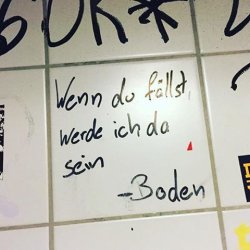 Wenn du fällst,
werde ich da
sein
-Boden